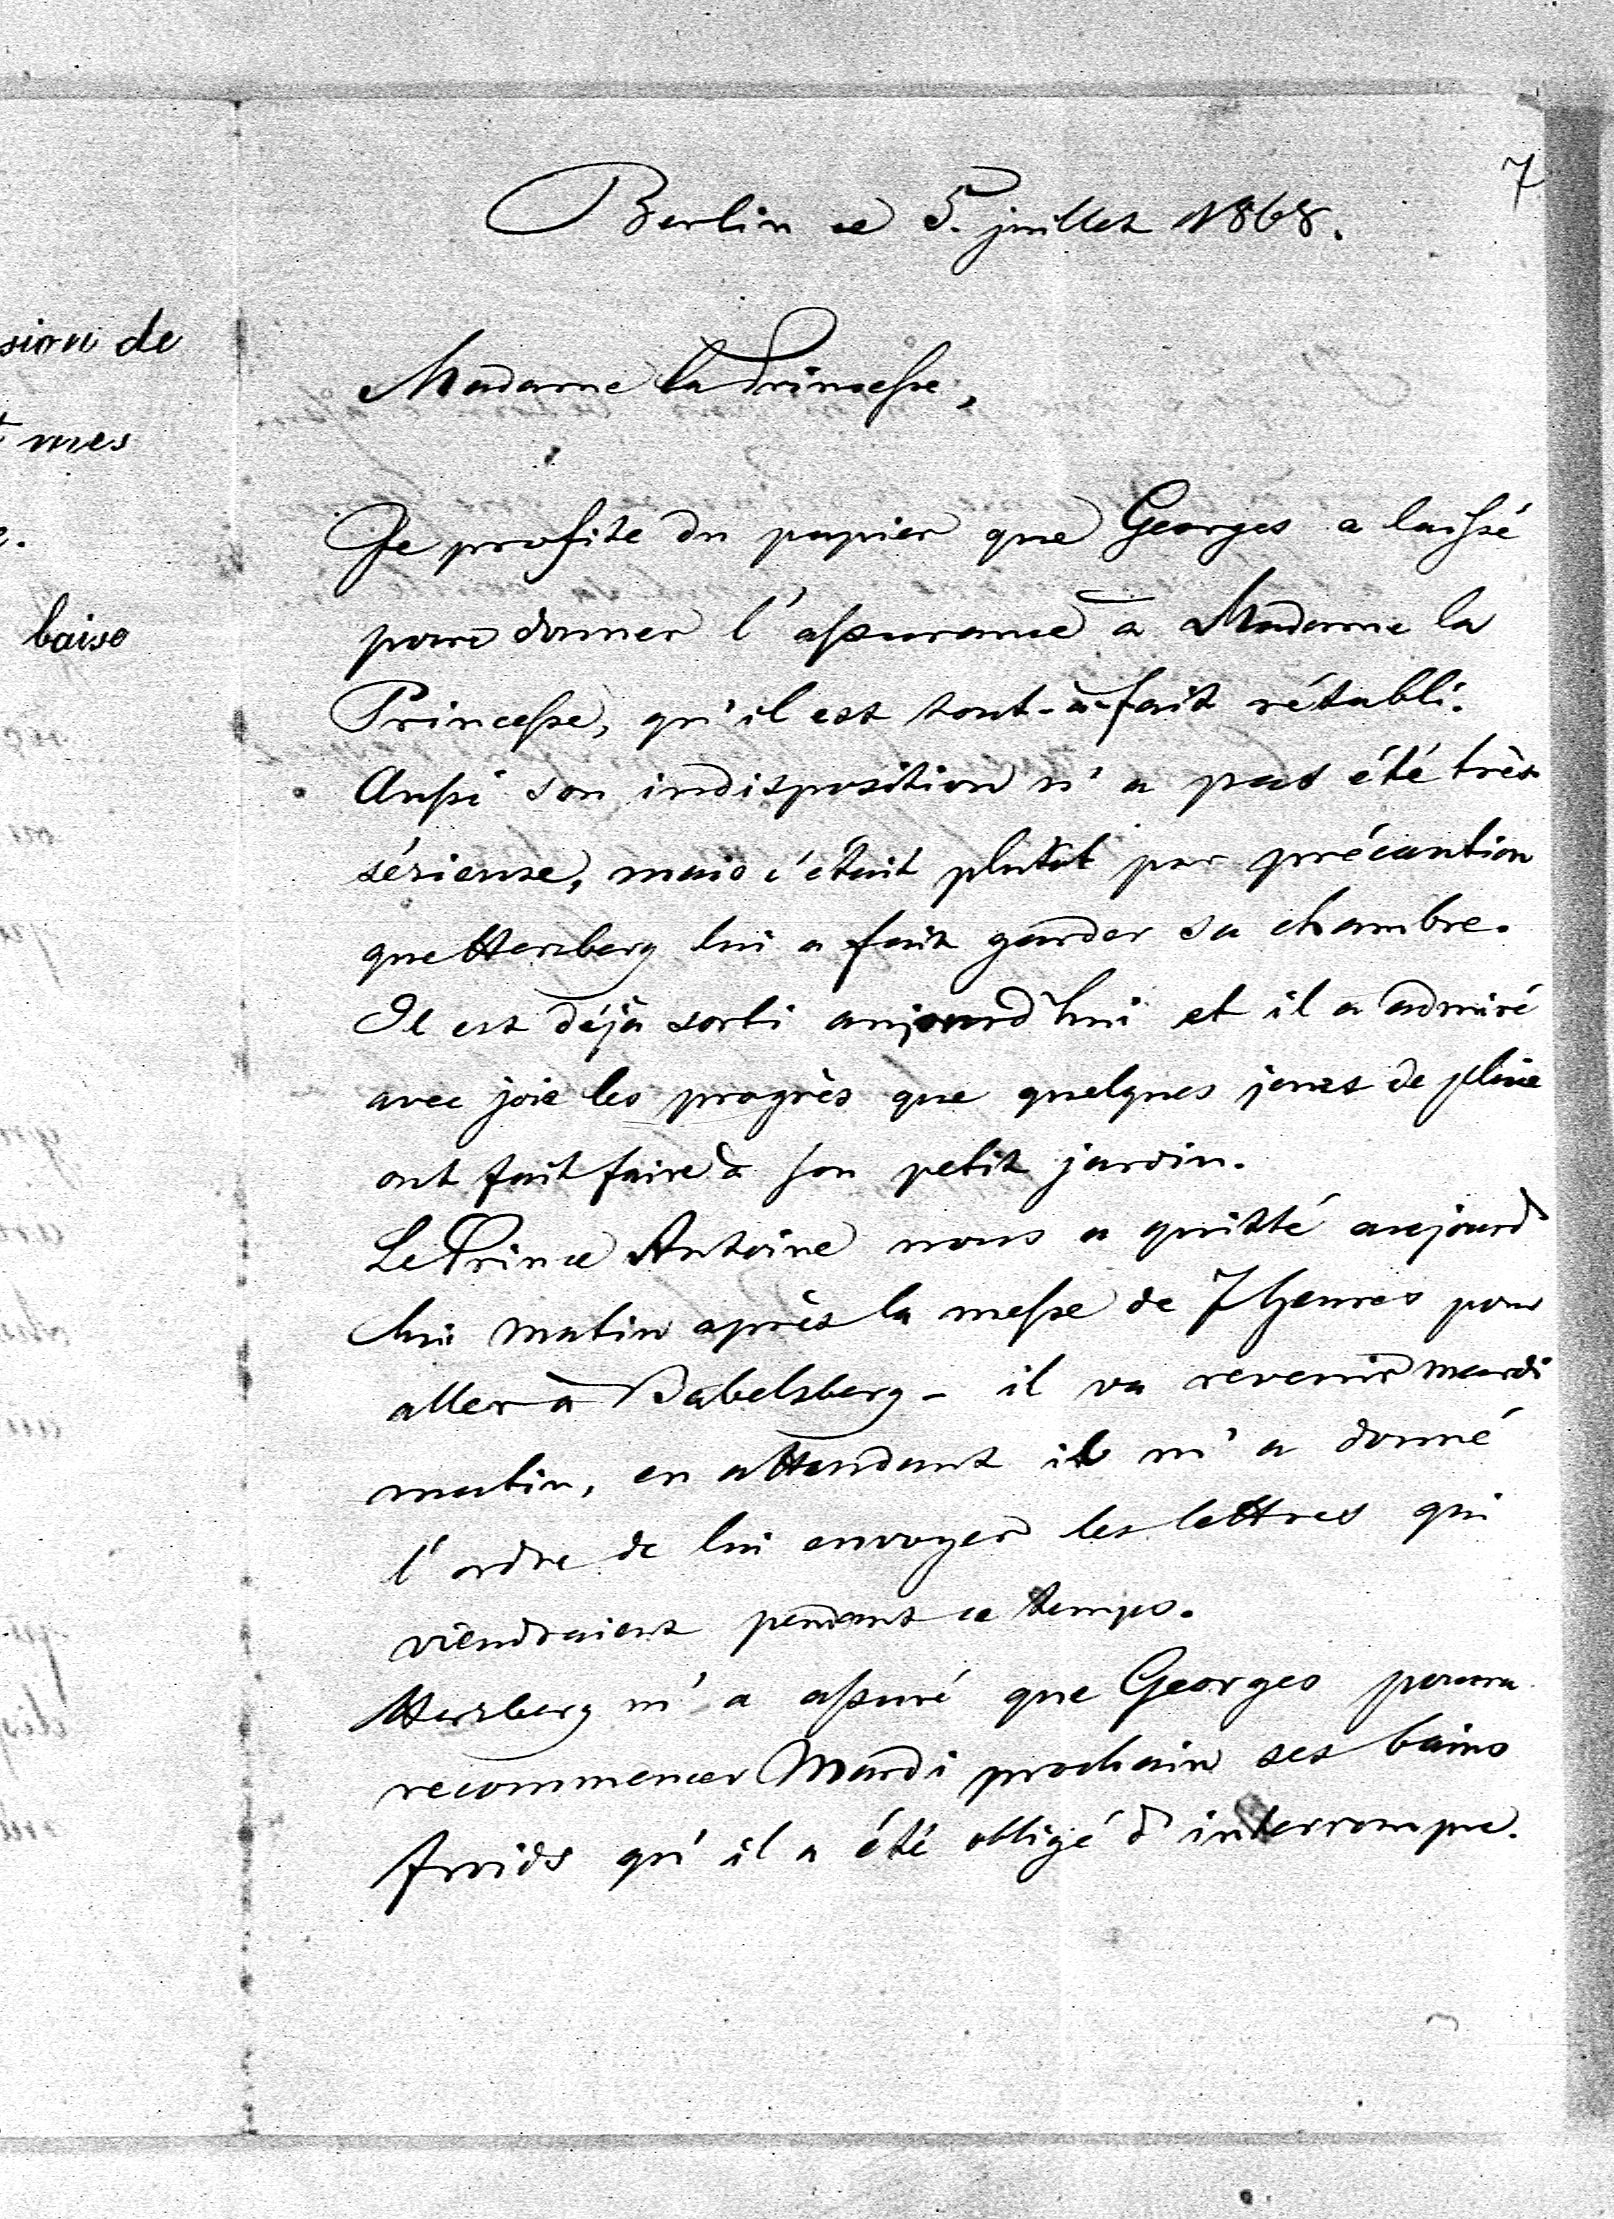 7
Berlin ce 5. juillet 1868.
sion de
mes
baise
Madame la Princesse,
Je profite du papier que Georges a laissé
pour donner l'assurance à Madame la
Princesse, qu'il est tout-à-fait rétabli.
Aussi son indisposition n'a pas été très
sérieuse, mais c'était plutôt par précaution
que Herzberg lui a fait garder sa chambre.
Il est déjà sorti aujourd'hui et il a admiré
avec joie les progrès que quelques jours de pluie
ont fait faire à son petit jardin.
Le Prince Antoine nous a quitté aujourd'
hui matin après la messe de 7 heures pour
aller à Babelsberg - il va revenir mardi
matin, en attendant il m'a donné
l'ordre de lui envoyer les lettres qui
viendraient pendant ce temps.
Herzberg m'a assuré que Georges pourra
recommencer Mardi prochain ses bains
froids qu'il a été obligé d'interrompre.